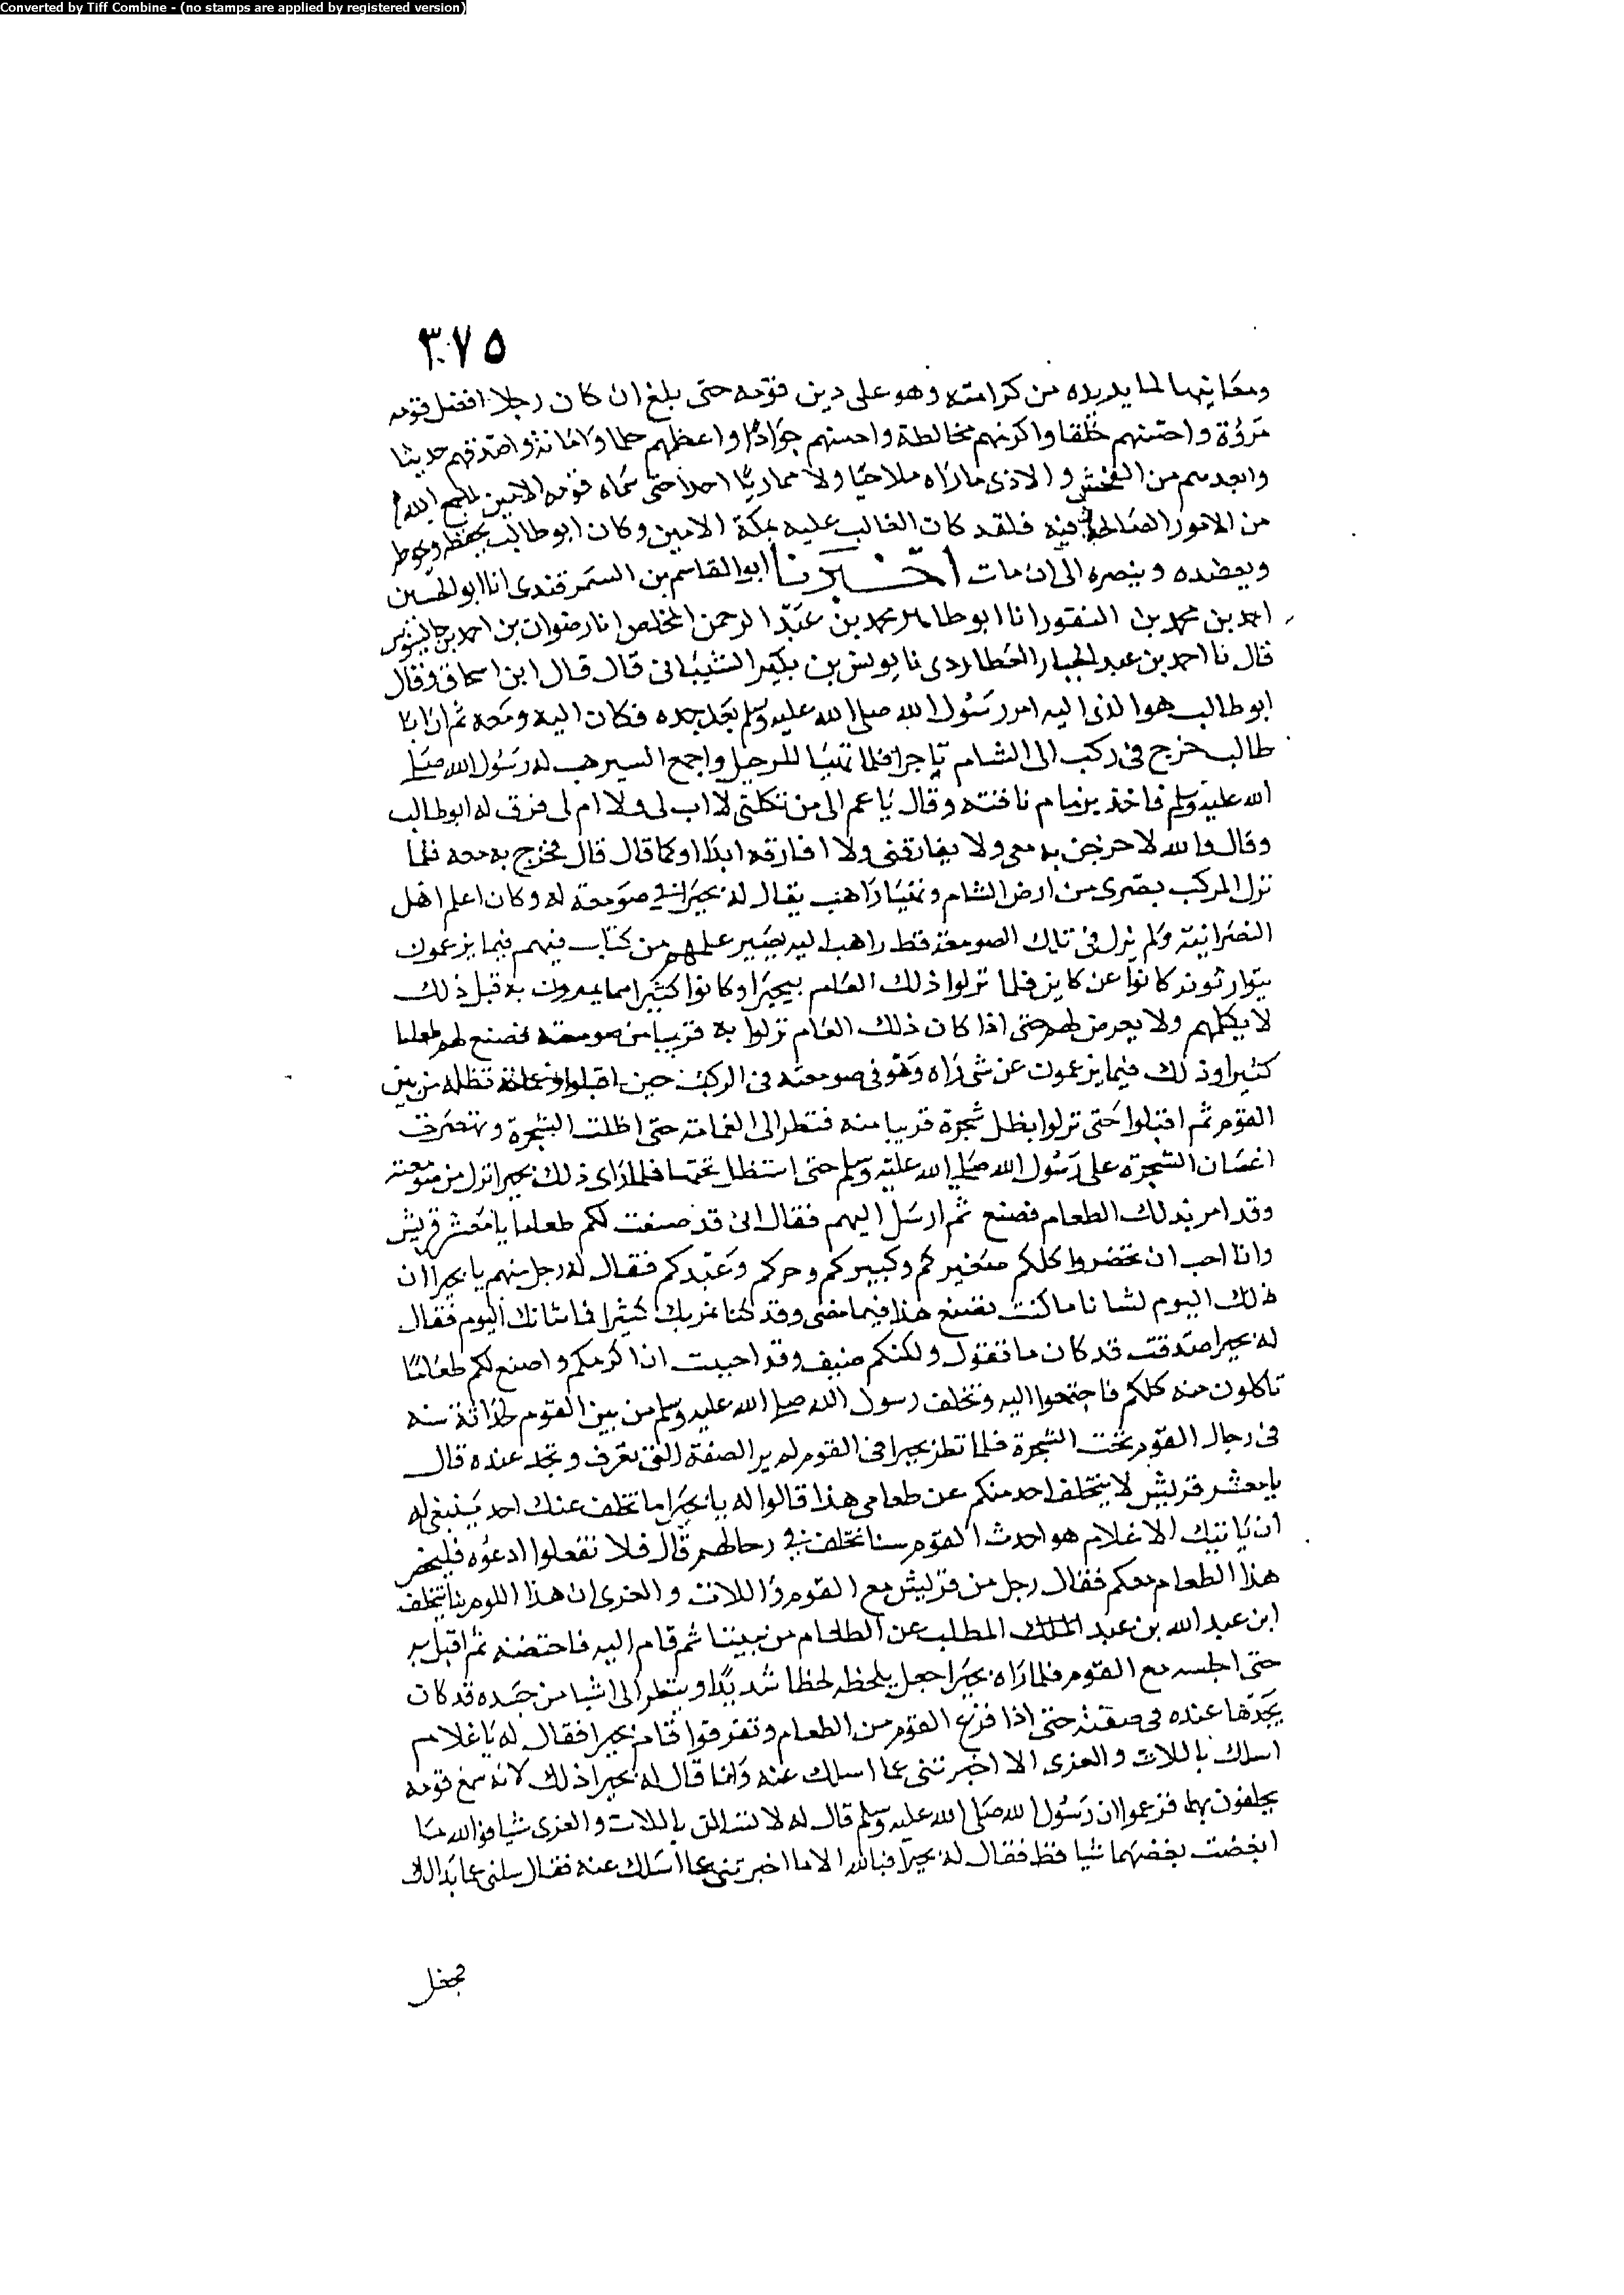 Converted by Tiff Combine - (no stamps are applied by registered version)
٣٠٧٥
ومعايبها لما يريده من كرامته وهو على دين قومه حتى بلغ ان كان رجلا افضل قومه
مروة واحسنهم خلقا واكرمهم مخالطة واحسنهم جوارا واعظمهم حلما وامانة واصدقهم حديثا
وابعدهم من الفحش والاذى ماراه ملاحيا ولا مماريا احدا حتى سماه قومه الامين لما جمع الله له
من الامور الصالحة فيه فلقد كان الغالب عليه بمكة الامين وكان ابو طالب يحفظه ويحوطه
ويعضده وينصره الى ان مات اخبرنا ابو القاسم بن السمرقندي انا ابو الحسين
احمد بن محمد بن النقور انا ابو طاهر محمد بن عبد الرحمن المخلص انا رضوان بن احمد بن جالينوس
قال نا احمد بن عبد الجبار العطاردي نا يونس بن بكير الشيباني قال قال ابن اسحاق وقال
ابو طالب هو الذي اليه امر رسول الله صلى الله عليه وسلم بعد جده فكان اليه ومعه ثم ان ابا
طالب خرج في ركب الى الشام تاجرا فلما تهيا للرحيل واجمع السير هب له رسول الله صلى
الله عليه وسلم فاخذ بزمام ناقته وقال يا عم الى من تكلني لا اب لي ولا ام لي فرق له ابو طالب
وقال والله لاخرجن به معي ولا يفارقني ولا افارقه ابدا او كما قال قال فخرج به معه فلما
نزل المركب بصرى من ارض الشام وبها راهب يقال له بحيرا في صومعة له وكان اعلم اهل
النصرانية ولم يزل في تلك الصومعة قط راهب اليه يصير علمهم من كتاب فيهم فيما يزعمون
يتوارثونه كانوا عن كابر فلما نزلوا ذلك العام ببحيرا وكانوا كثيرا مما يمرون به قبل ذلك
لا يكلمهم ولا يعرض لهم حتى اذا كان ذلك العام نزلوا به قريبا من صومعته فصنع لهم طعاما
كثيرا وذلك فيما يزعمون عن شي راه وهو في صومعته في الركب حين اقبلوا وغمامة تظله من بين
القوم ثم اقبلوا حتى نزلوا بظل شجرة قريبا منه فنظر الى الغمامة حتى اظلت الشجرة وتهصرت
اغصان الشجرة على رسول الله صلى الله عليه وسلم حتى استظل تحتها فلما راى ذلك بحيرا نزل من صومعته
وقد امر بذلك الطعام فصنع ثم ارسل اليهم فقال اني قد صنعت لكم طعاما يا معشر قريش
وانا احب ان تحضروا كلكم صغيركم وكبيركم وحركم وعبدكم فقال له رجل منهم يا بحيرا ان
ذلك اليوم لشانا ما كنت تصنع هذا فيما مضى وقد كنا نمر بك كثيرا فما شانك اليوم فقال
له بحيرا صدقت قد كان ما تقول ولكنكم ضيف وقد احببت ان اكرمكم واصنع لكم طعاما
تاكلون منه كلكم فاجتمعوا اليه وتخلف رسول الله صلى الله عليه وسلم من بين القوم لحداثة سنه
في رحال القوم تحت الشجرة فلما نظر بحيرا في القوم لم ير الصفة التي يعرف ويجد عنده قال
يا معشر قريش لا يتخلف احد منكم عن طعامي هذا قالوا له يا بحيرا ما تخلف عنك احد ينبغي له
ان ياتيك الا غلام هو احدث القوم سنا تخلف في رحالهم قال فلا تفعلوا ادعوه فليحضر
هذا الطعام معكم فقال رجل من قريش مع القوم واللات والعزى ان هذا اللوم بنا يتخلف
ابن عبد الله بن عبد المطلب عن الطعام من بيننا ثم قام اليه فاحتضنه ثم اقبل به
حتى اجلسه مع القوم فلما راه بحيرا جعل يلحظه لحظا شديدا وينظر الى اشيا من جسده قد كان
يجدها عنده في صفته حتى اذا فرغ القوم من الطعام وتفرقوا قام بحيرا فقال له يا غلام
اسلك باللات والعزى الا اخبرتني عما اسلك عنه وانما قال له بحيرا ذلك لانه سمع قومه
يحلفون بهما فزعموا ان رسول الله صلى الله عليه وسلم قال له لا تسالن باللات والعزى شيا فوالله ما
ابغضت بغضهما شيا قط فقال له بحيرا فبالله الا ما اخبرتني عما اسلك عنه فقال سلني عما بدا لك
فجعل